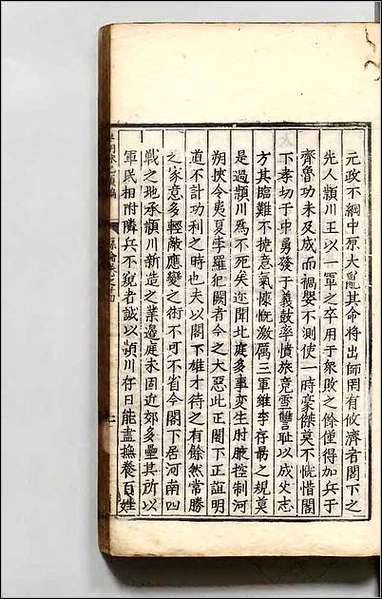 元政不綱中原大亂其命將出師罔有攸濟者閣下之
先人潁川王以一軍之卒用于衆敗之餘僅得加兵于
齊魯功未及成而禍嬰不測使一時豪傑莫不恍惜閣
下孝切于中勇發于義鼓率憤旅竟雪讐耻以成父志
方其臨難不撓意氣慷慨激厲三軍雖李存勗之規莫
是過潁川爲不死矣迩聞北庭多事變生肘腋控制河
朔挾令夷夏孛羅犯闕者今之大惡此正閣下正誼明
道不計功利之時也夫以閣下雄才待之有餘然常勝
之家意多輕敵應變之術不可不省今閣下居河南四
戰之地承潁川新造之業邊庭未固近郊多壘其所以
軍民相附隣兵不窺者誠以潁川存日能盡撫養百姓